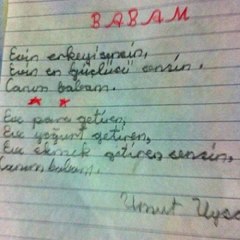 BABAM
Evin erkeyisensin,
Evin en güçlüsü sensin.
Canım babam.
Eve para getiren,
Eve yoğurt getiren,
Eve ekmek getiren sensin,
Canım babam.
Umut Uysa